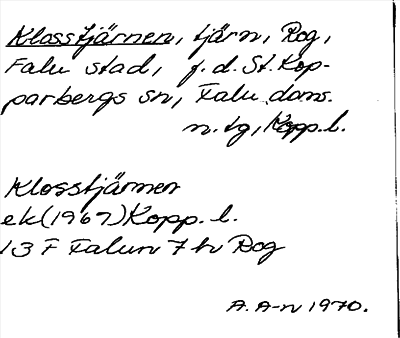 Klosstjärnen, tjärn, Rog,
Falu stad, f.d. St. Kop-
parbergs sn, Falu doms.
n. tg, Kopp. l.
Klosstjärnen
ek (1967) Kopp. l.
13 F Falun 7 h Rog
A. A-n 1970.